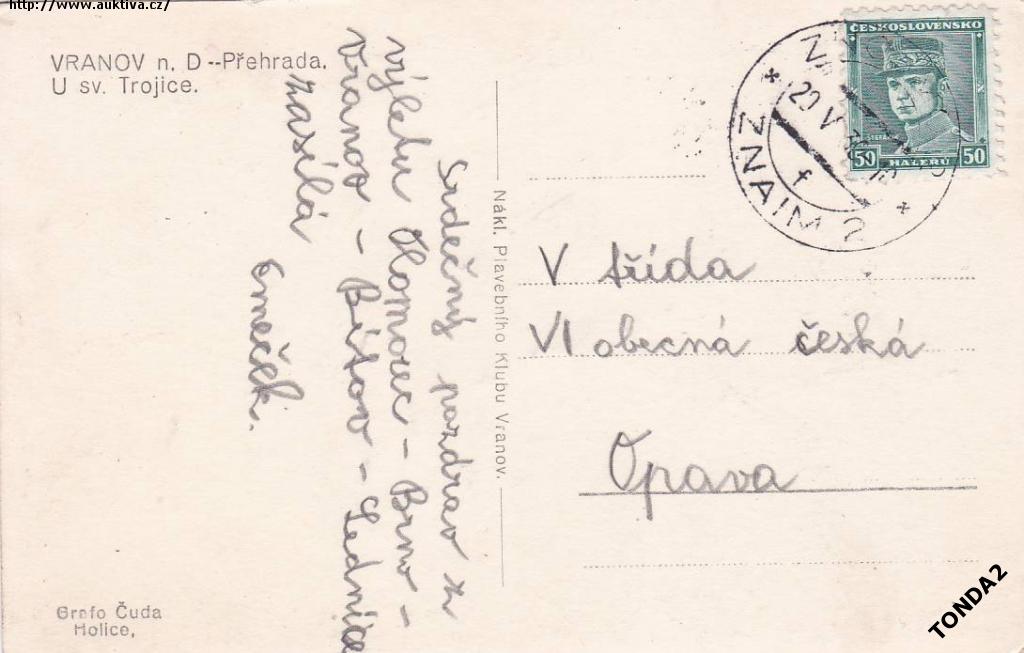 http://www.auktiva.cz/
VRANOV n. D--Přehrada.
U sv. Trojice.
Srdečný pozdrav z
výletu Olomouc - Brno -
Vranov - Bítov - Lednice
zasílá
Nákl. Plavebního Klubu Vranov.
ČESKOSLOVENSKO
50 HALÉŘŮ 50
ZNAIM 2
V třída
VI obecná česká
Opava
Grafo Čuda
Holice,
TONDA2